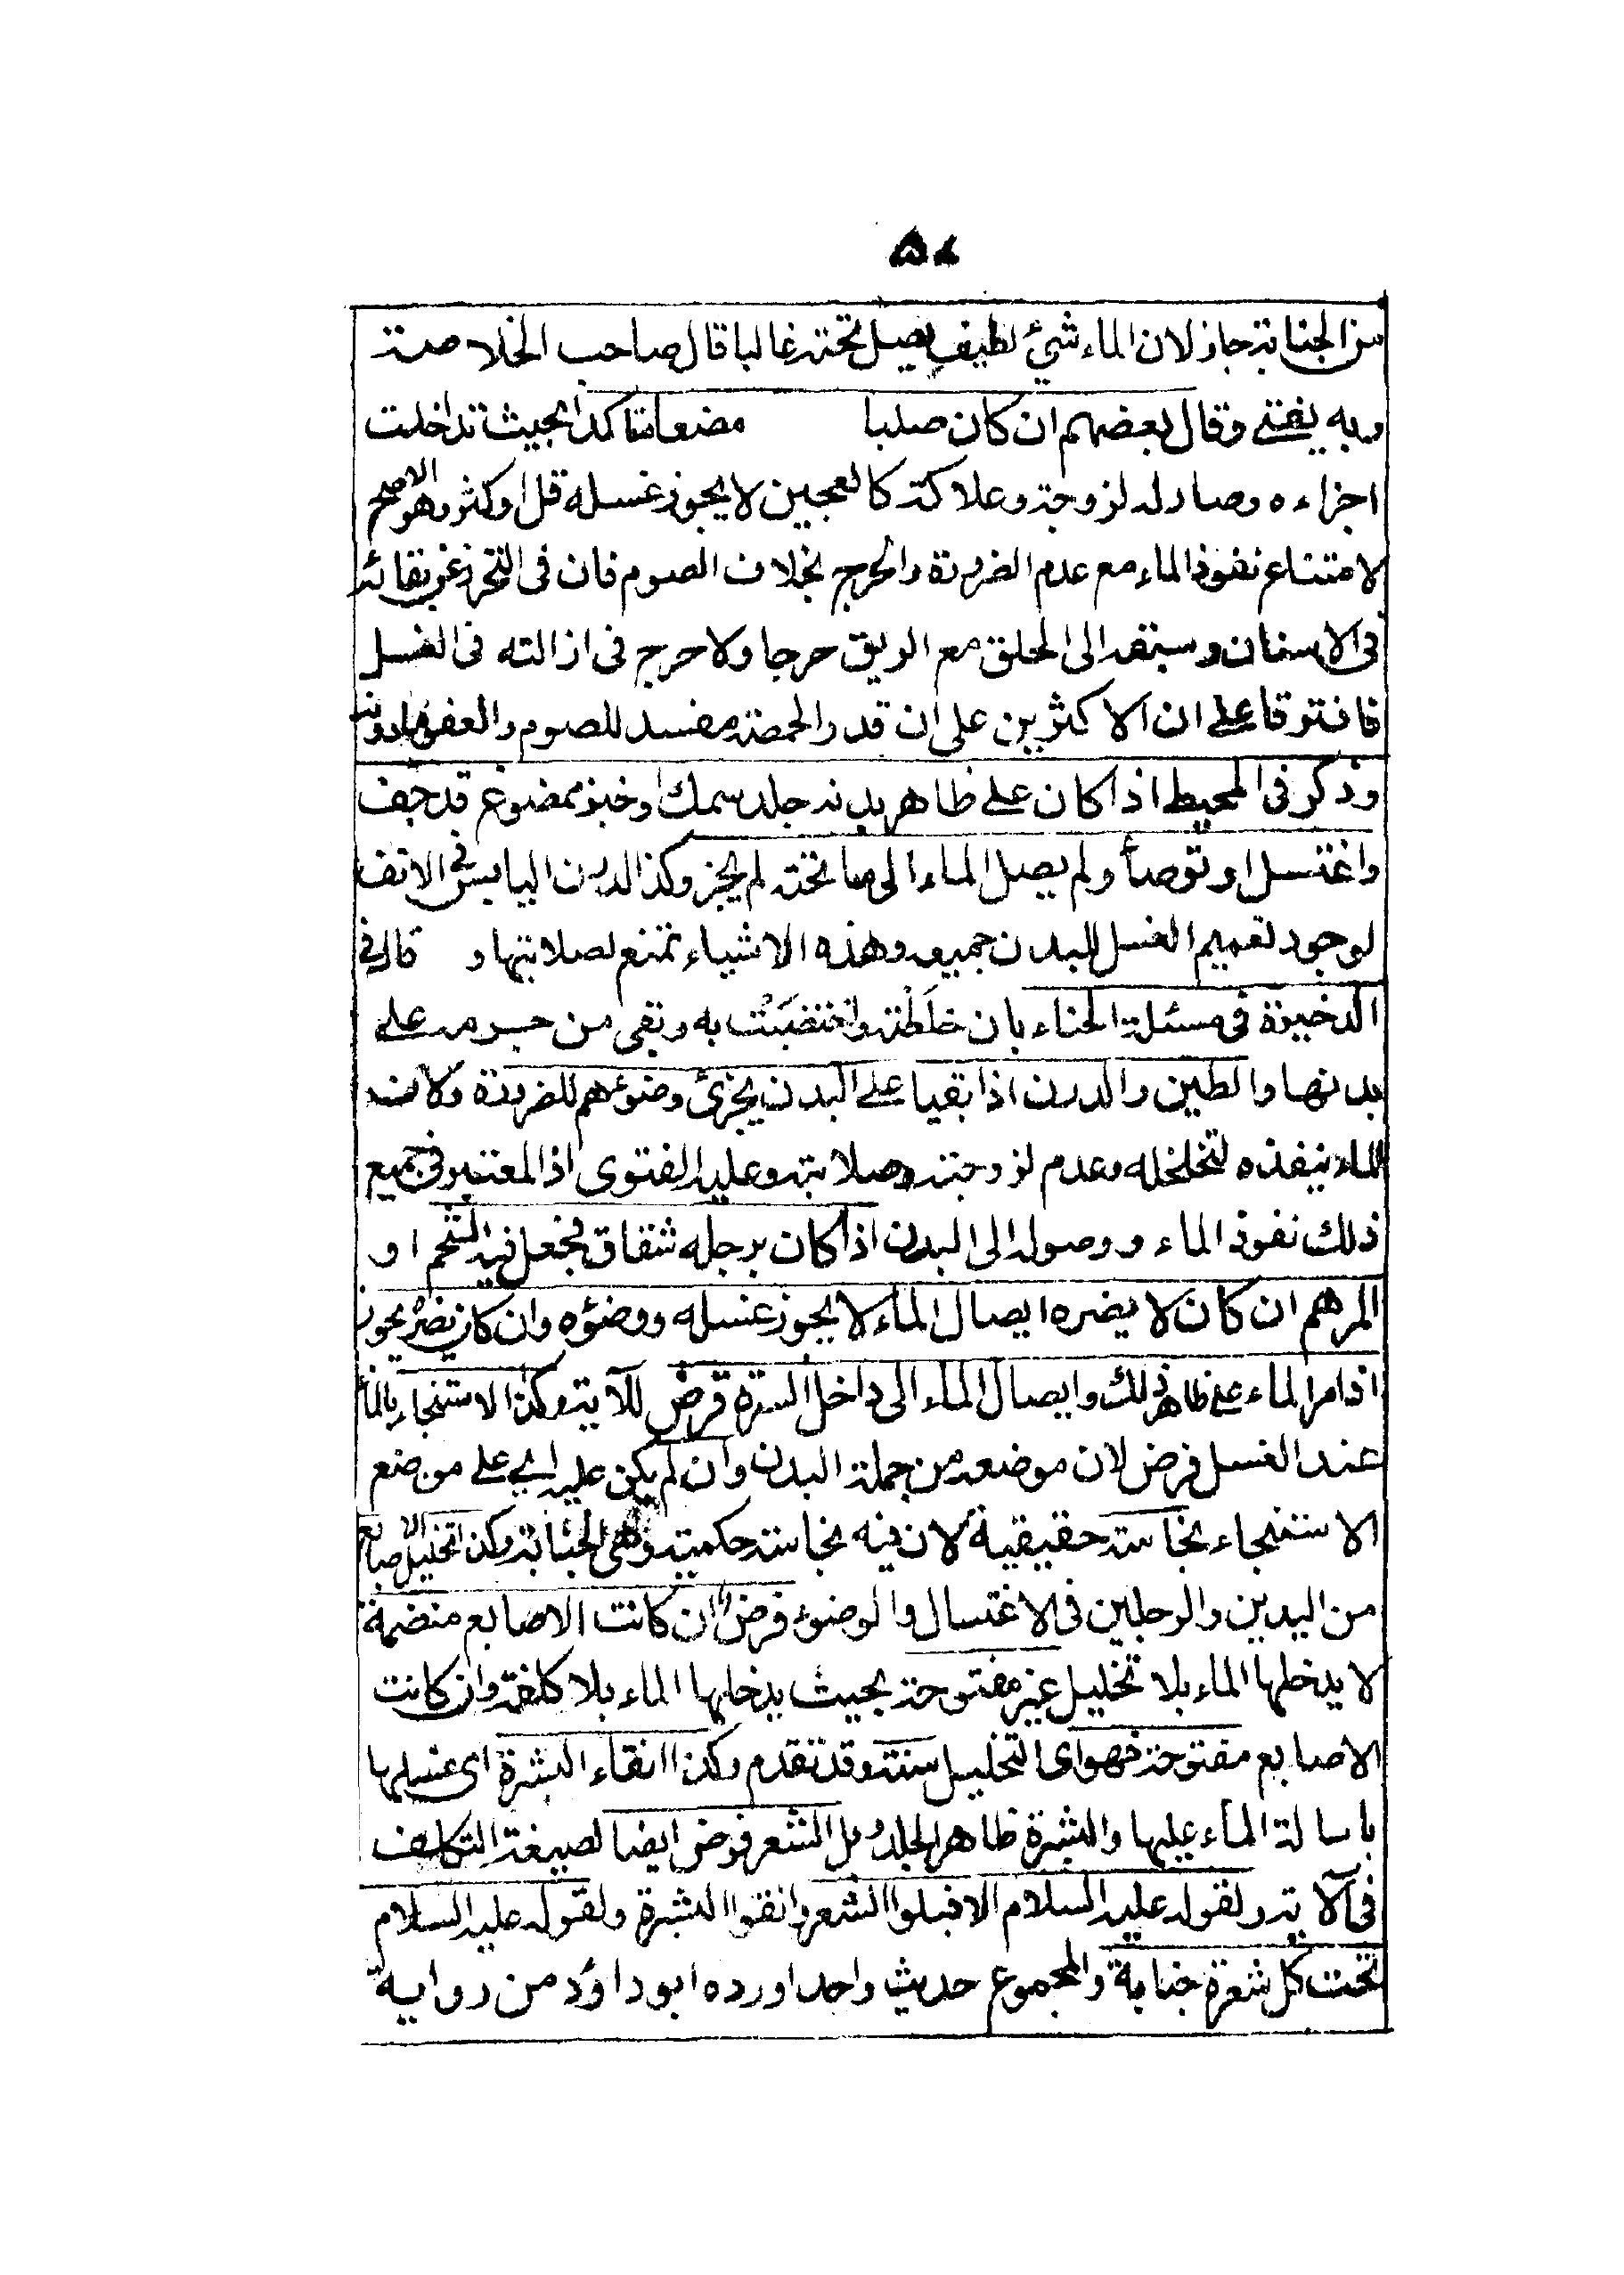 من الجنابة جاز لان الماء شئ لطيف يصل تحته غالبا قال صاحب الخلاصة
وبه يفتى وقال بعضهم ان كان صلبا مضغا متاكدا بحيث تداخلت
اجزاءه وصار له لزوجة وعلاكة كالعجين لا يجوز غسله قل او كثر وهو الاصح
لامتناع نفوذ الماء مع عدم الضرورة والحرج بخلاف الصوم فان فى التحرز عن بقائه
فى الاسنان وسبقه الى الحلق مع الريق حرجا ولا حرج فى ازالته فى الغسل
فافترقا على ان الاكثرين على ان قدر الحمصة مفسد للصوم والعفو مادونه
وذكر فى المحيط اذا كان على ظاهر بدنه جلد سمك او خبز ممضوغ قد جف
واغتسل او توضأ ولم يصل الماء الى ما تحته لم يجز وكذا الدرن اليابس فى الانف
لوجود تعميم الغسل للبدن جميعه وهذه الاشياء تمنع لصلابتها و قال فى
الذخيرة فى مسئلة الحناء بان خلطته واختضبت به وبقى من جرمه على
بدنها والطين والدرن اذا بقيا على البدن يجزئ وضوءهم للضرورة ولان
الماء ينفذه لتخلخله وعدم لزوجته وصلابته وعليه الفتوى اذ المعتبر فى جميع
ذلك نفوذ الماء ووصوله الى البدن اذا كان برجله شقاق فجعل فيه الشحم او
المرهم ان كان لا يضره ايصال الماء لا يجوز غسله ووضؤه وان كان يضره يجوز
اذا مر الماء على ظاهر ذلك وايصال الماء الى داخل السرة فرض للآية وكذا الاستنجاء بالماء
عند الغسل فرض لان موضعه من جملة البدن وان لم يكن عليه اى على موضع
الاستنجاء نجاسة حقيقية لان فيه نجاسة حكمية وهى الجنابة وكذا تخليل الاصابع
من اليدين والرجلين فى الاغتسال والوضوء فرض ان كانت الاصابع منضمة
لا يدخلها الماء بلا تخليل غير مفتوحة بحيث يدخلها الماء بلا كلفة وان كانت
الاصابع مفتوحة فهو اى التخليل سنة وقد تقدم وكذا انقاء البشرة اى غسلها
باسالة الماء عليها والبشرة ظاهر الجلد وبل الشعر فرض ايضا لصيغة التكلف
فى الآية ولقوله عليه السلام الا فبلوا الشعر وانقوا البشرة ولقوله عليه السلام
تحت كل شعرة جنابة والمجموع حديث واحد اورده ابو داؤد من رواية